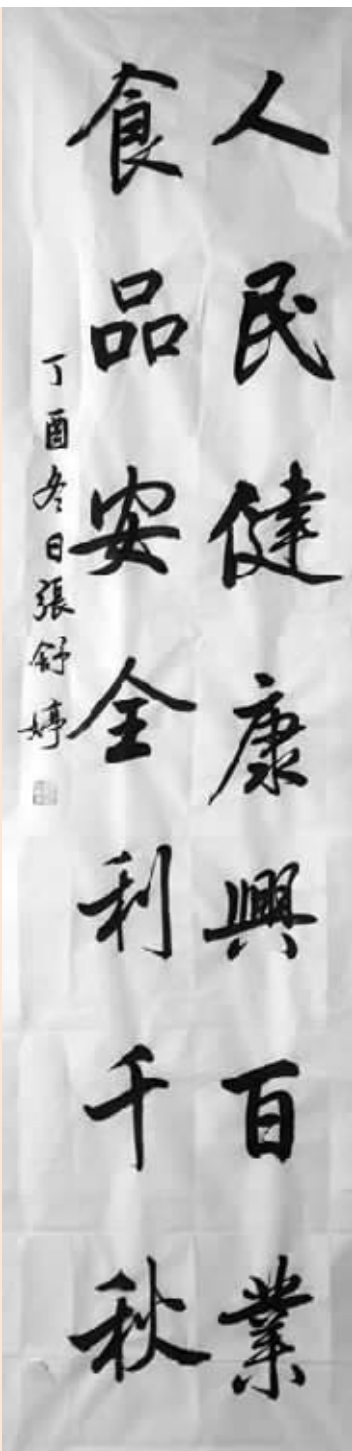 人民健康興百業
食品安全利千秋
丁酉冬日張舒婷